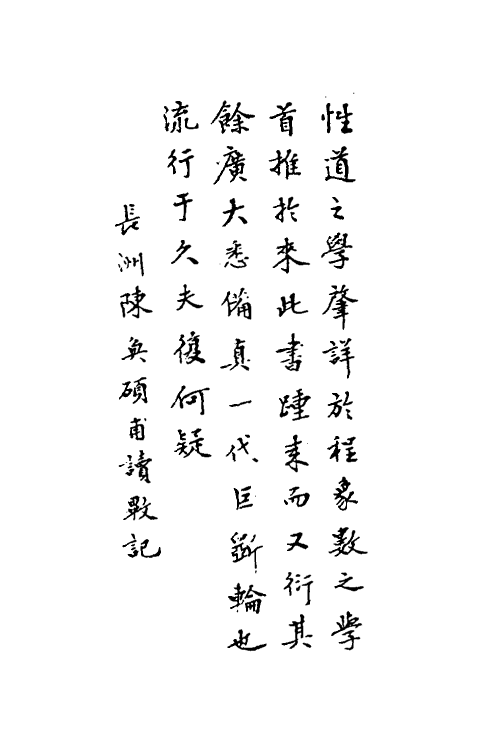 性道之學肇詳於程象數之學
首推於來此書踵來而又衍其
餘廣大悉備真一代巨斲輪也
流行于久夫復何疑
長洲陳奐碩甫讀數記